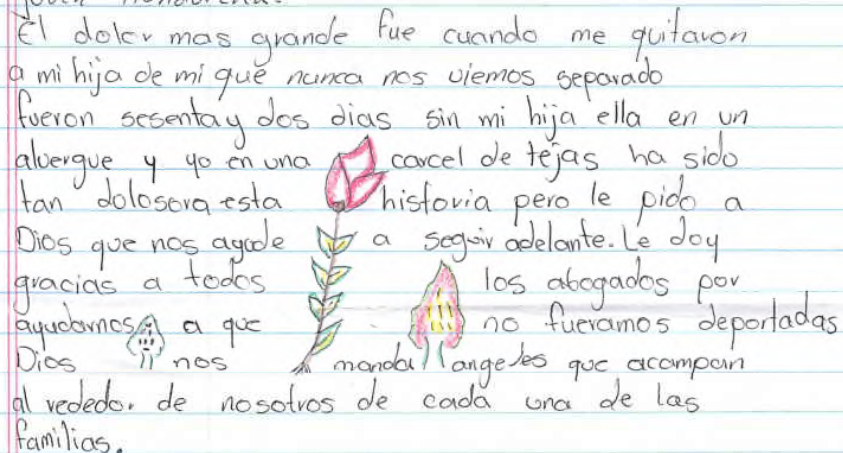 El dolor mas grande fue cuando me quitaron
a mi hija de mi que nunca nos viemos separado
fueron sesenta y dos dias sin mi hija ella en un
alvergue y yo en una carcel de tejas ha sido
tan dolosora esta historia pero le pido a
Dios que nos agude a seguir adelante. Le doy
gracias a todos los abogados por
ayudarnos a que no fueramos deportadas
Dios nos manda angeles que acampan
al rededor de nosotros de cada una de las
familias.